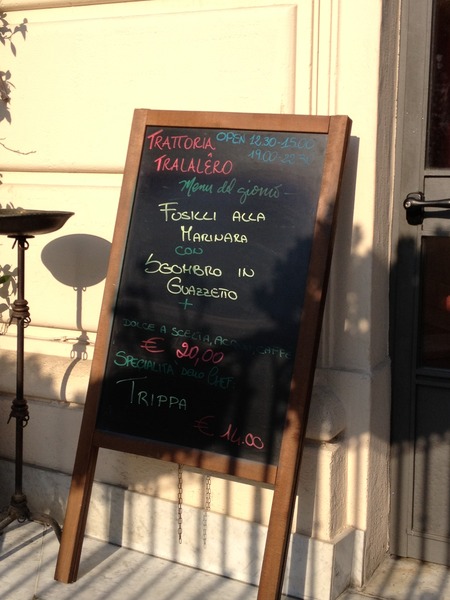 TRATTORIA OPEN 12.30-15.00
TRALALÊRO 19.00-22.30
Menu del giorno -
FUSILLI ALLA
MARINARA
CON
SGOMBRO IN
GUAZZETTO
+
DOLCE A SCELTA, ACQUA, CAFFE
€ 20,00
SPECIALITÀ dello CHEF
TRIPPA
€ 14.00